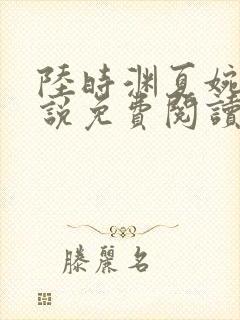 陸時渊夏婉
說免費閱讀
滕麗名